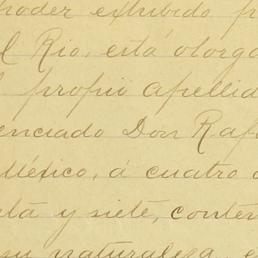 poder exhibido p
l Rio, está otorga
propio apellid
enciado Don Raf
México, á cuatro d
ta y siete, conten
su naturaleza, e